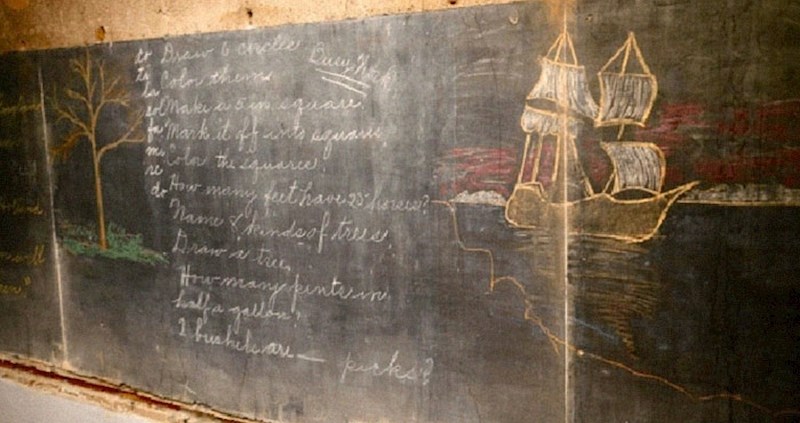 do
ti
la
sol
fa
mi
re
do
Draw 6 circles
Busy Work
Color them
Make a 5 in square.
Mark it off into squares
Color the squares.
How many feet have 25 horses?
Name 8 kinds of trees.
Draw a tree.
How many pints in
half a gallon?
2 bushels are — pecks?